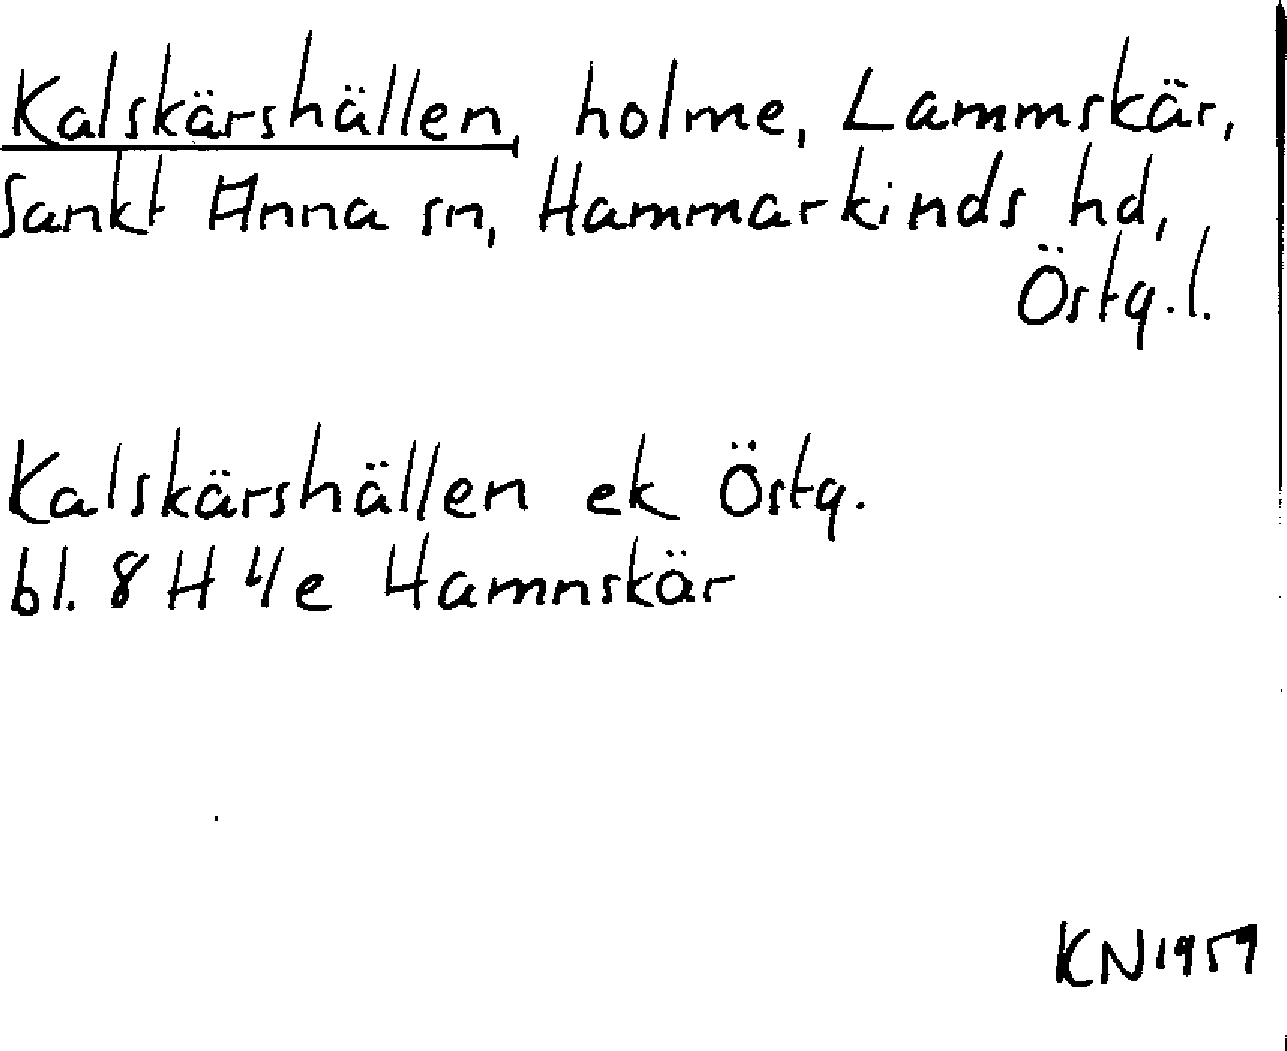 Kalskärshällen, holme, Lammskär,
Sankt Anna sn, Hammarkinds hd,
Östg.l.
Kalskärshällen ek Östg.
bl. 8H 4e Hamnskär
KN 1959